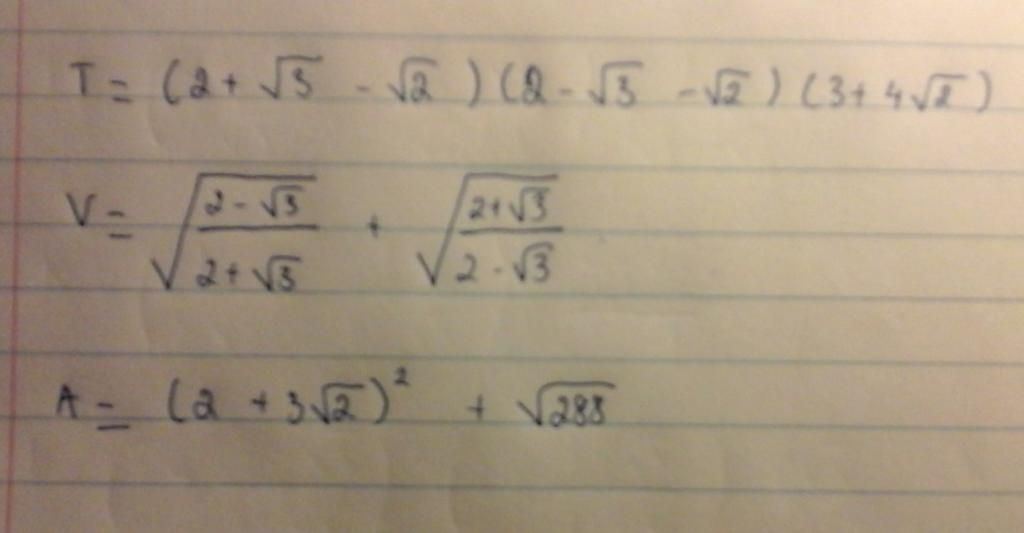 T = (2 + √3 - √2) (2 - √3 - √2) (3 + 4√2)
V = √((2 - √3)/(2 + √3)) + √((2 + √3)/(2 - √3))
A = (2 + 3√2)² + √288